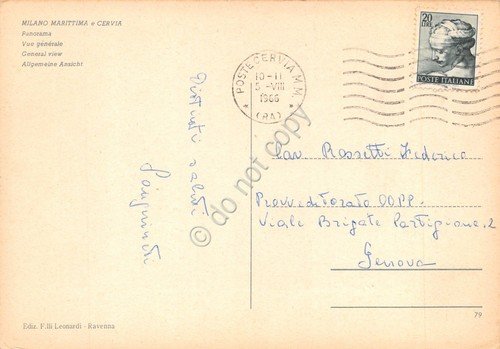 MILANO MARITTIMA e CERVIA
Panorama
Vue générale
General view
Allgemeine Ansicht
POSTE CERVIA M.M.
10-11
5.-VIII
1966
(RA)
20
LIRE
POSTE ITALIANE
Distinti saluti
Cav. Rossetti Federico
Provveditorato OO.PP.
Viale Brigate Partigiane. 2
Genova
do not copy
Ediz. F.lli Leonardi - Ravenna
79